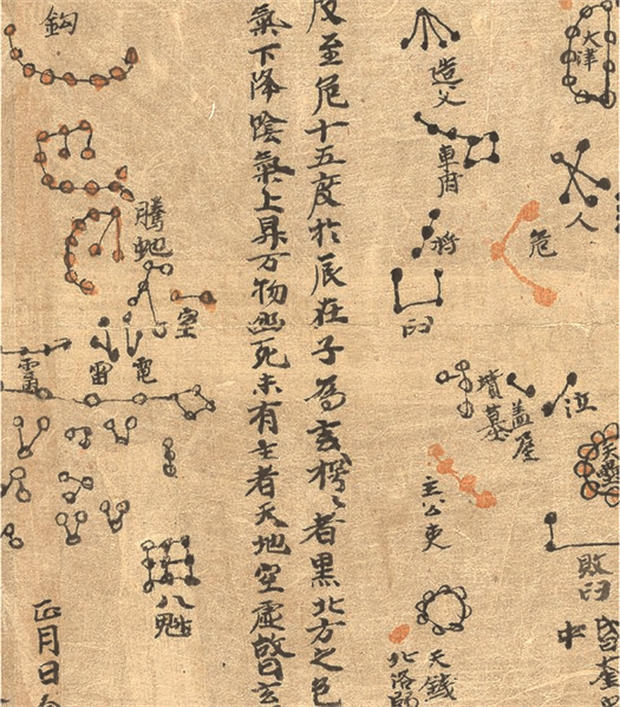 大津
人
危
泣
盖屋
墳墓
天壘
敗臼
中
造父
車府
將
臼
主公吏
天錢
北落師
度至危十五度於辰在子為玄枵〻者黑北方之色
氣下降陰氣上昇万物幽死未有生者天地空虛
鈎
騰虵
室
電
雷
八魁
正月日